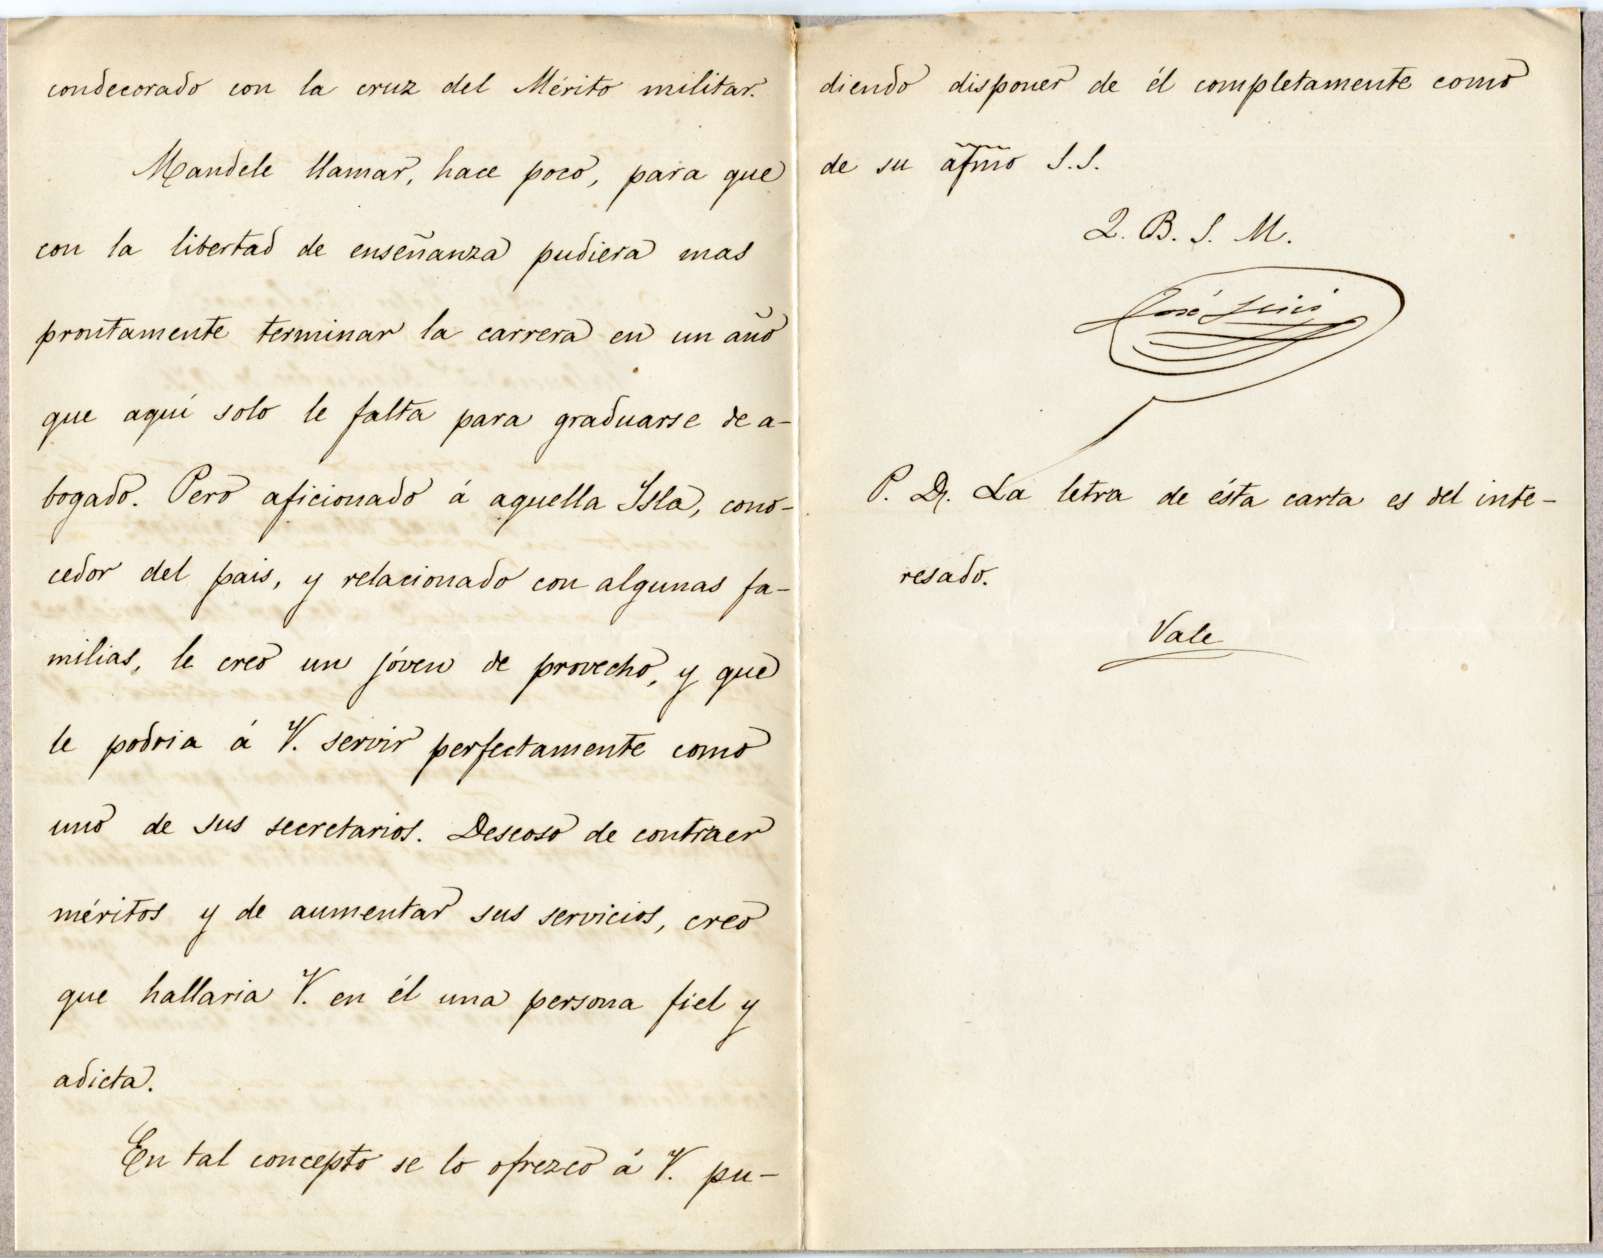 condecorado con la cruz del Mérito militar.
Mandele llamar, hace poco, para que
con la libertad de enseñanza pudiera mas
prontamente terminar la carrera en un año
que aquí solo le falta para graduarse de a-
bogado. Pero aficionado á aquella Isla, cono-
cedor del pais, y relacionado con algunas fa-
milias, le creo un jóven de provecho, y que
le podria á V. servir perfectamente como
uno de sus secretarios. Deseoso de contraer
méritos y de aumentar sus servicios, creo
que hallaria V. en él una persona fiel y
adicta.
En tal concepto se lo ofrezco á V. pu-
diendo disponer de él completamente como
de su afmo S.S.
Q. B. S. M.
José
P. D. La letra de ésta carta es del inte-
resado.
Vale